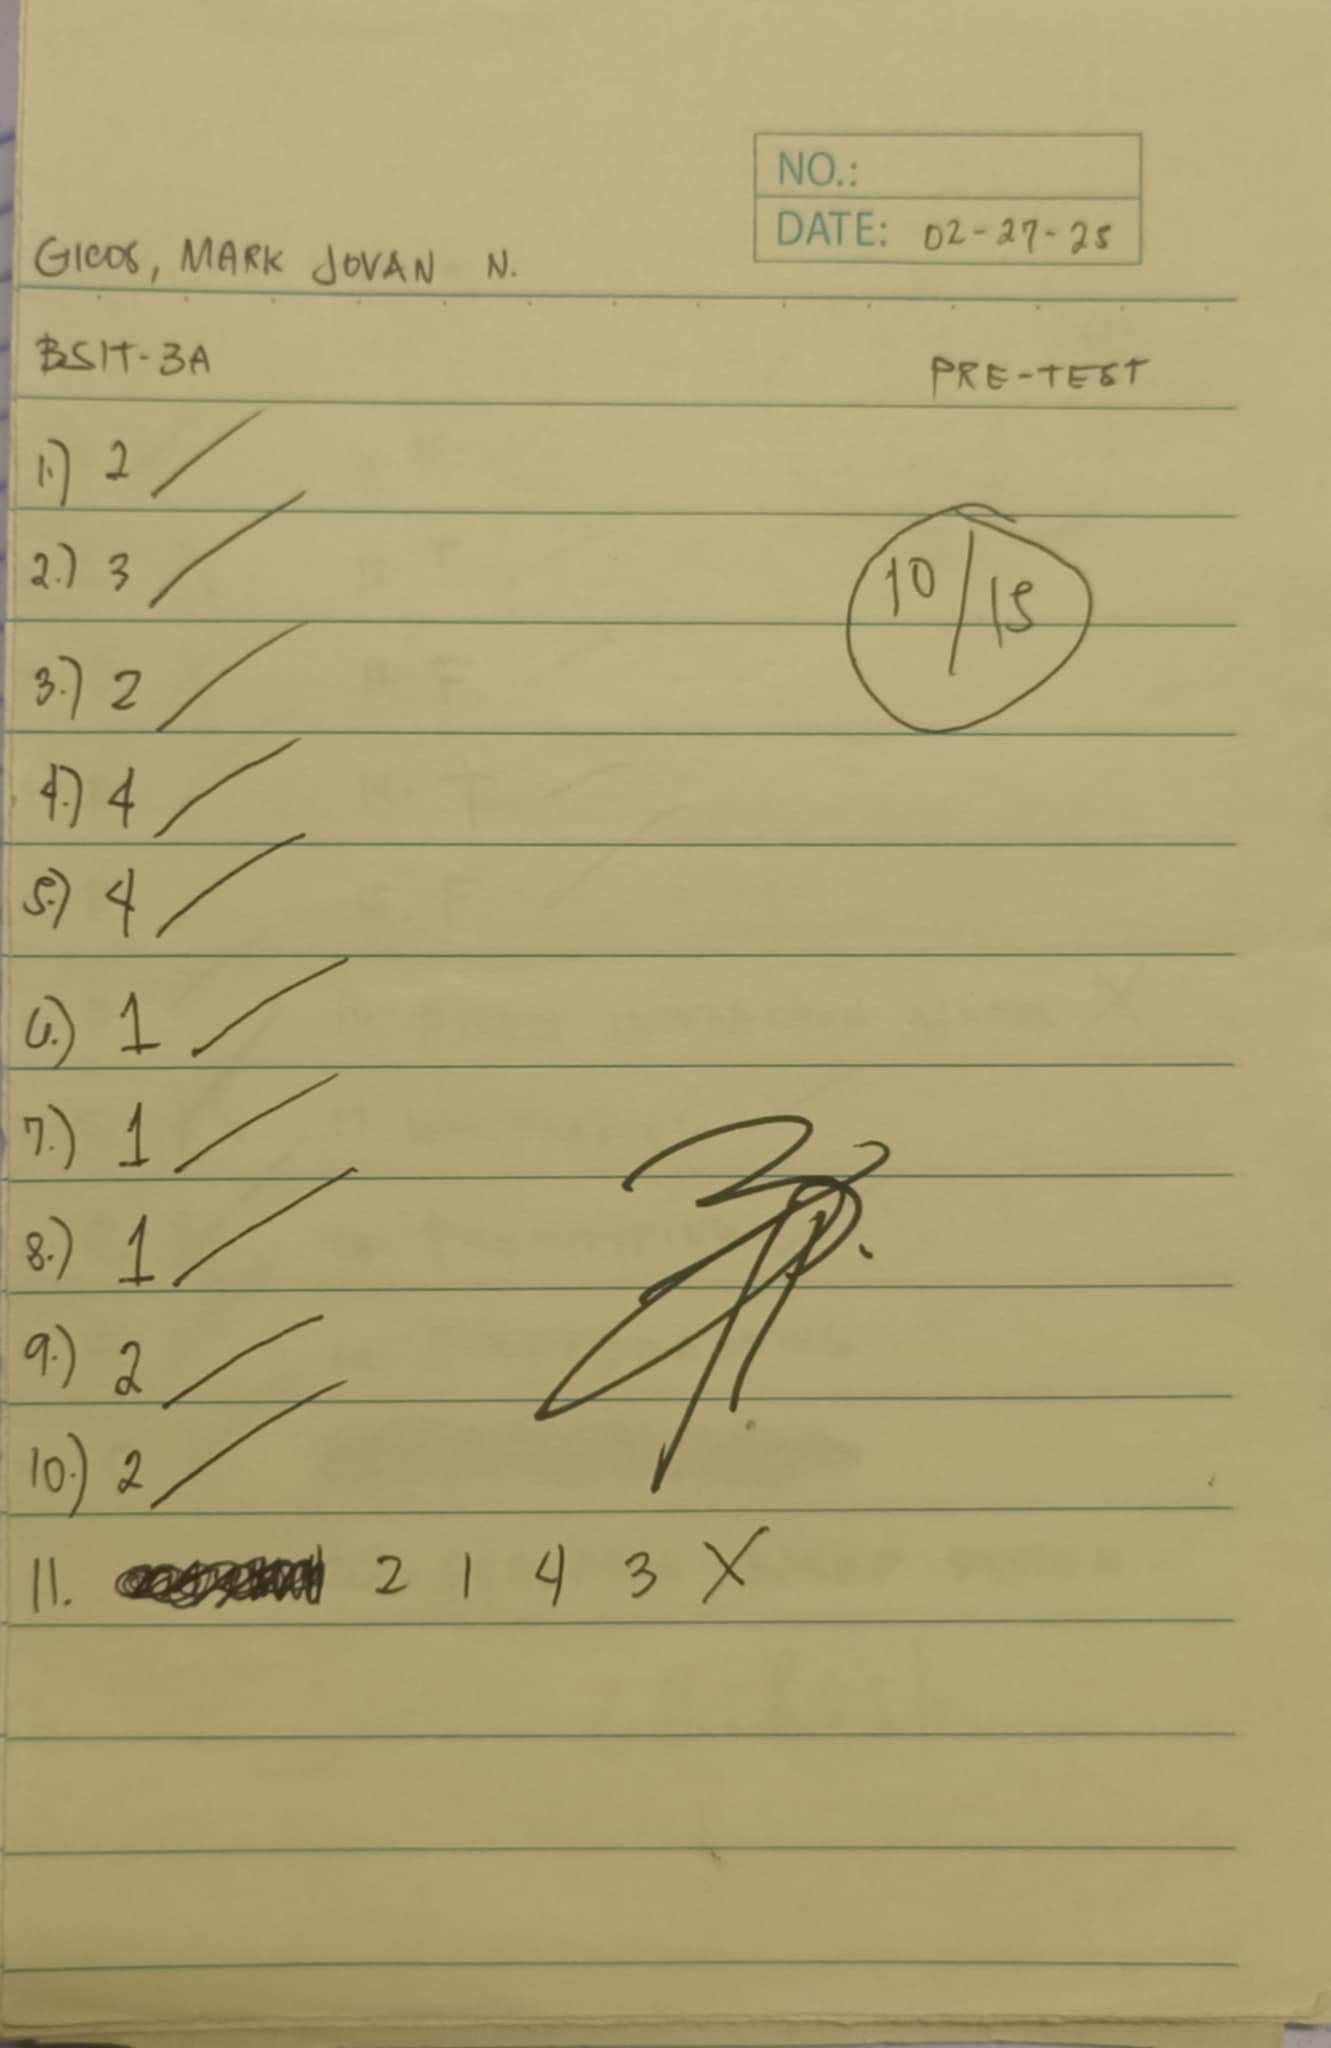 NO.:
DATE: 02-27-25
GICOS, MARK JOVAN N.
BSIT-3A PRE-TEST
1.) 2
2.) 3
10/15
3.) 2
4.) 4
5.) 4
6.) 1
7.) 1
8.) 1
9.) 2
10.) 2
11. 2 1 4 3 X